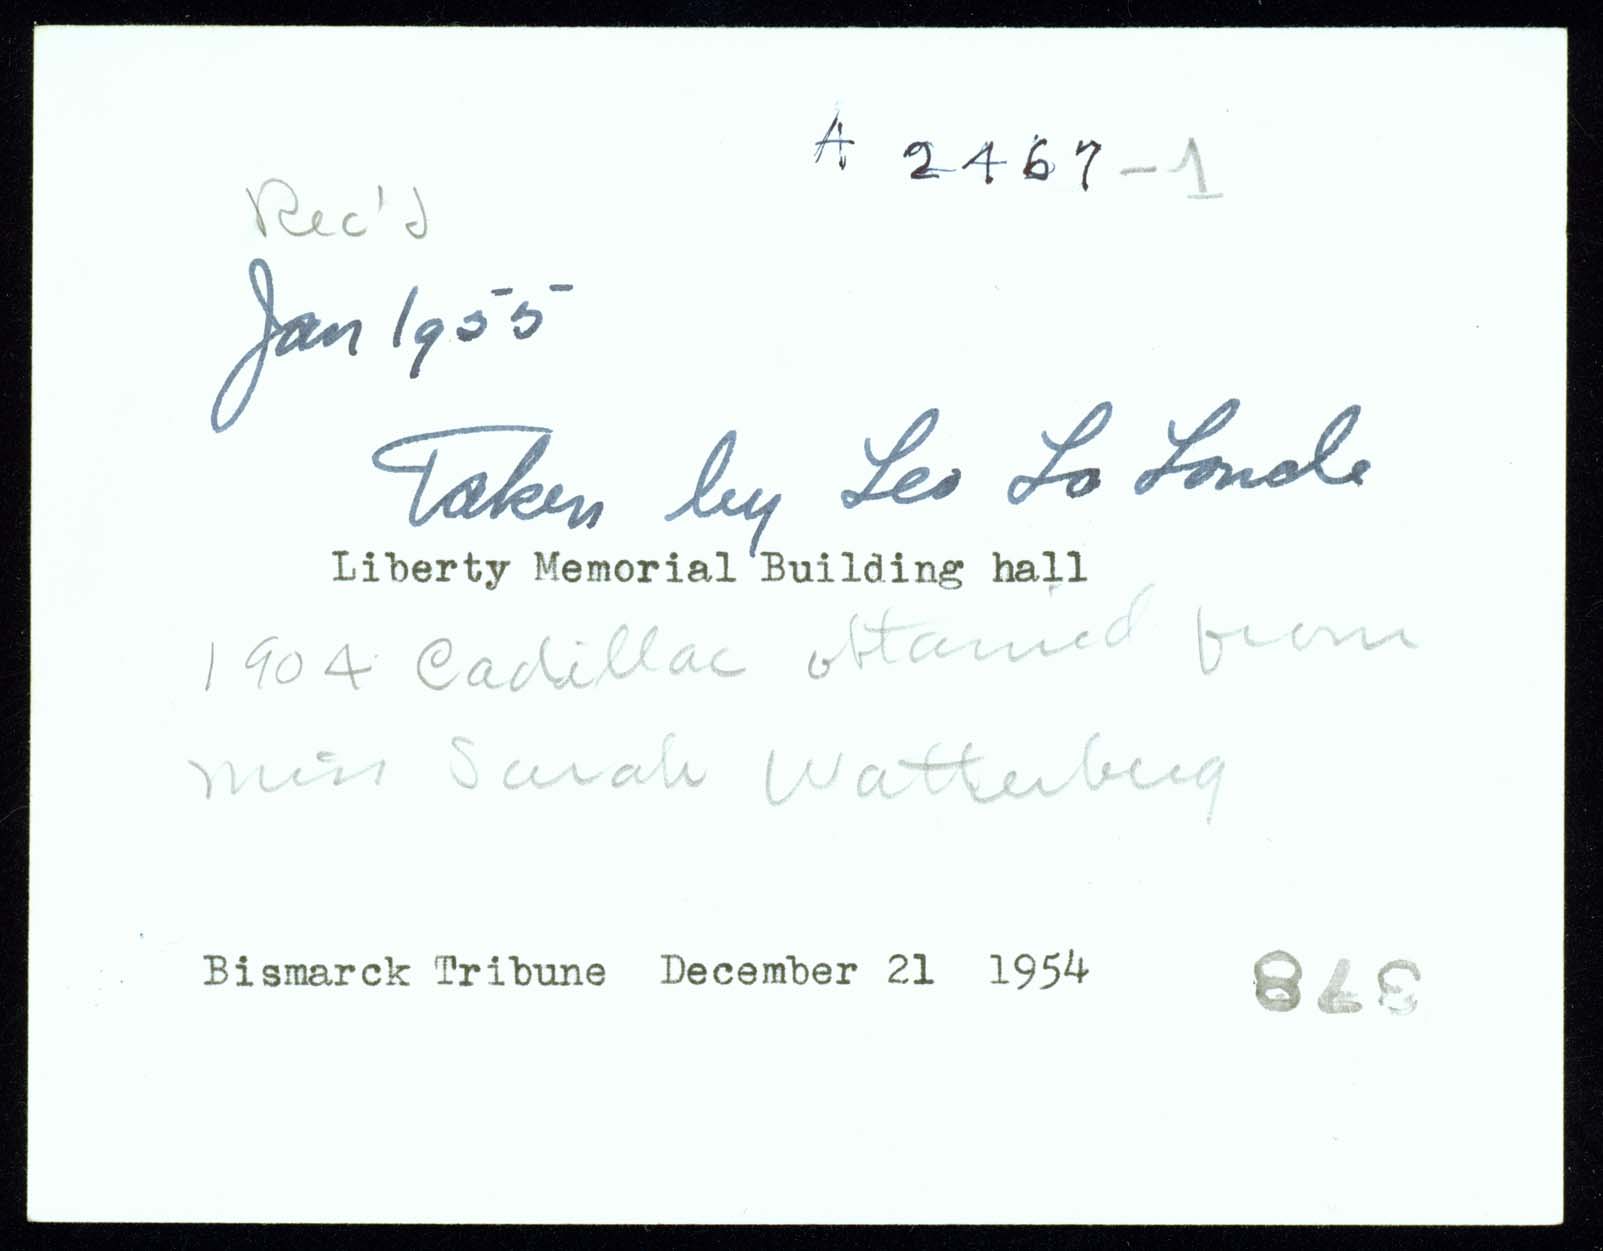 A 2467-1
Rec'd
Jan 1955
Taken by Leo La Londe
Liberty Memorial Building hall
1904 Cadillac obtained from
Miss Sarah Watterberg
Bismarck Tribune December 21 1954
378